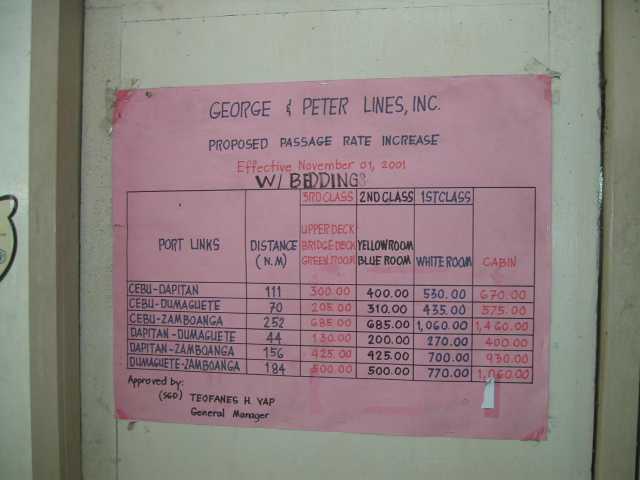 GEORGE & PETER LINES, INC.
PROPOSED PASSAGE RATE INCREASE
Effective November 01, 2001
W/ BEDDINGS
3RD CLASS 2ND CLASS 1ST CLASS
PORT LINKS DISTANCE (N.M) UPPER DECK BRIDGE DECK GREEN ROOM YELLOW ROOM BLUE ROOM WHITE ROOM CABIN
CEBU-DAPITAN 111 300.00 400.00 530.00 670.00
CEBU-DUMAGUETE 70 205.00 310.00 435.00 575.00
CEBU-ZAMBOANGA 252 685.00 685.00 1,060.00 1,460.00
DAPITAN-DUMAGUETE 44 130.00 200.00 270.00 400.00
DAPITAN-ZAMBOANGA 156 425.00 425.00 700.00 930.00
DUMAGUETE-ZAMBOANGA 184 500.00 500.00 770.00 1,060.00
Approved by:
(SGD) TEOFANES H. YAP
General Manager